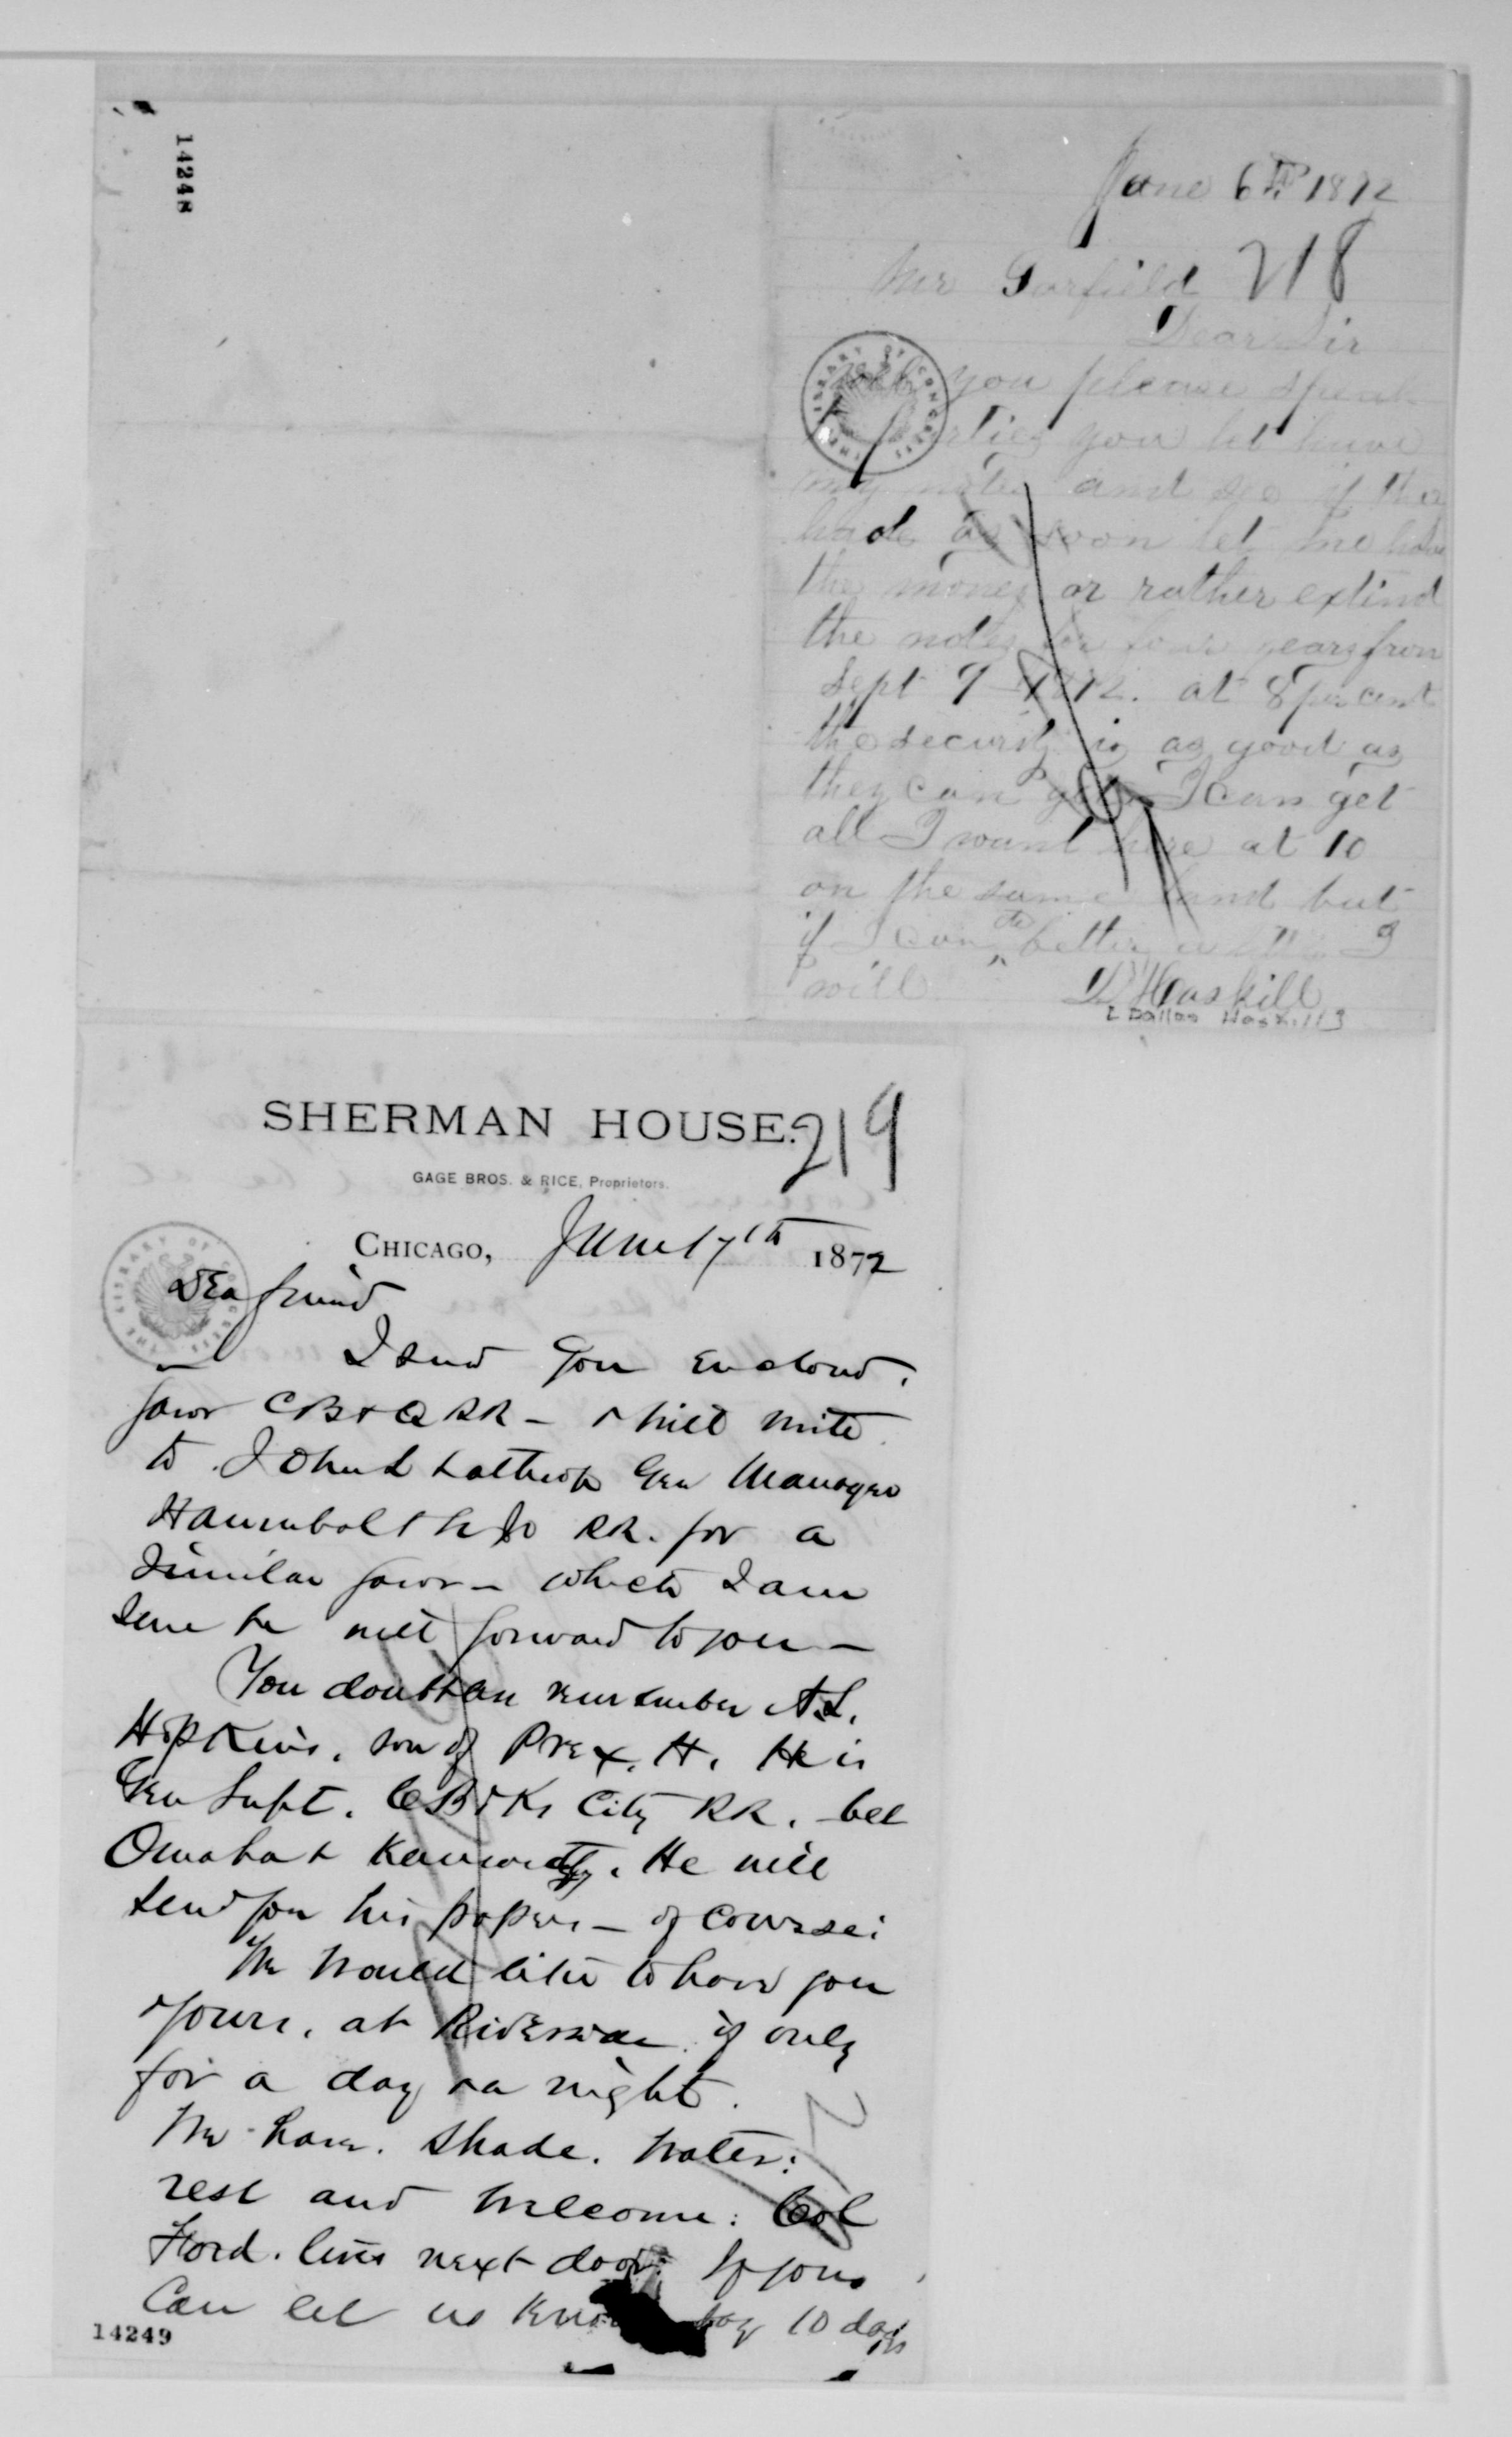 14248
June 6th 1872
218
Mr Garfield
Dear Sir
you please speak
to parties you let have
my notes and see if they
had as soon let me have
the money or rather extend
the notes for four years from
Sept 9 1872. at 8 per cent
the security is as good as
they can get I can get
all I want here at 10
on the same land but
if I can do better a little I
will D Haskill
[Dallas Haskill]
SHERMAN HOUSE.
219
GAGE BROS. & RICE, Proprietors.
CHICAGO, June 17th 1872
Dea friend
I send you enclosed.
favor CB&Q RR - & will write
to John L Lathrop Gen Manager
Hannibal & St Jo RR. for a
similar favor - which I am
sure he will forward to you -
You doubtless remember A.L.
Hopkins. son of Prex. H. He is
Gen Supt. CB & Ks City RR. bet
Omaha & Kansas City. He will
send you his papers - of course:
We would like to have you
& yours. at Riverside if only
for a day & a night.
We have. Shade. Water:
rest and welcome: Col
Ford. lives next door. If you
Can let us know say 10 days
14249
THE LIBRARY OF CONGRESS
THE LIBRARY OF CONGRESS